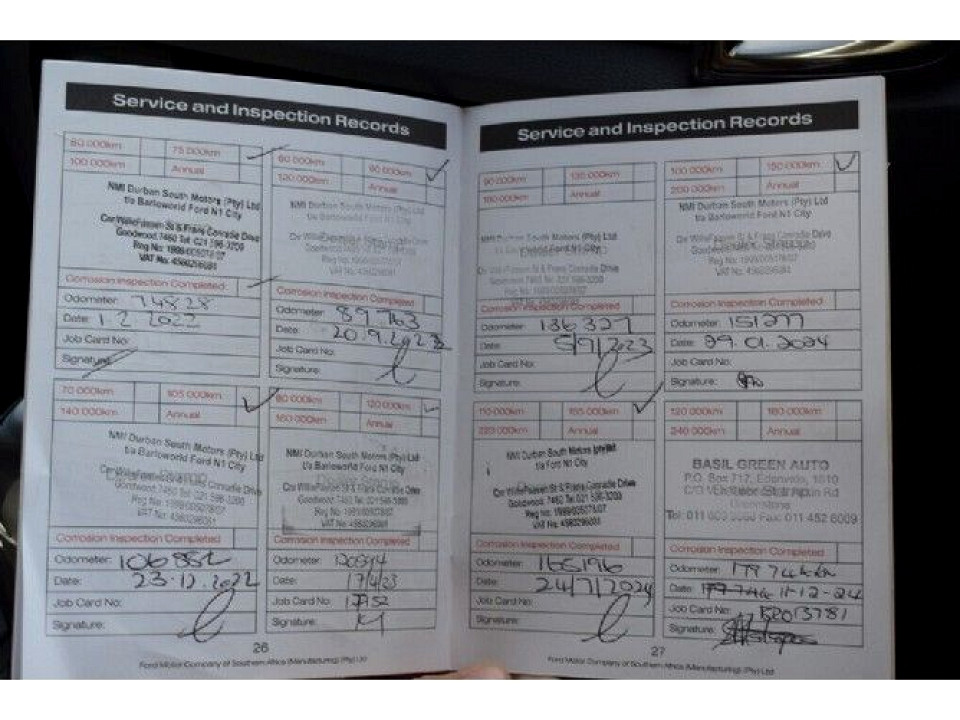 Service and Inspection Records
60 000km 75 000km
100 000km Annual
NMI Durban South Motors (Pty) Ltd
t/a Barloworld Ford N1 City
Cnr Willie Faasen St & Frans Conradie Drive
Goodwood, 7460 Tel: 021 596-3200
Reg No: 1999/005078/07
VAT No: 4560296081
Corrosion Inspection Completed
Odometer: 74828
Date: 1 2 2022
Job Card No:
Signature:
60 000km 90 000km
120 000km Annual
NMI Durban South Motors (Pty) Ltd
t/a Barloworld Ford N1 City
Reg No: 1999/005078/07
VAT No: 4560296081
Corrosion Inspection Completed
Odometer: 89.763
Date: 20.9.202
Job Card No:
Signature:
70 000km 105 000km
140 000km Annual
NMI Durban South Motors (Pty) Ltd
t/a Barloworld Ford N1 City
Goodwood, 7460 Tel: 021 596-3200
Reg No: 1999/005078/07
VAT No: 4560296081
Corrosion Inspection Completed
Odometer: 106852
Date: 23.12.2022
Job Card No:
Signature:
80 000km 120 000km
160 000km Annual
NMI Durban South Motors (Pty) Ltd
t/a Barloworld Ford N1 City
Cnr Willie Faasen St & Frans Conradie Drive
Goodwood, 7460 Tel: 021 596-3200
Reg No: 1999/005078/07
VAT No: 4560296081
Corrosion Inspection Completed
Odometer:
Date: 17/4/23
Job Card No:
Signature:
26
Ford Motor Company of Southern Africa (Manufacturing) (Pty) Ltd
Service and Inspection Records
90 000km 135 000km
180 000km Annual
NMI Durban South Motors (Pty) Ltd
t/a Barloworld Ford N1 City
Cnr Willie Faasen St & Frans Conradie Drive
Goodwood, 7460 Tel: 021 596-3200
Reg No: 1999/005078/07
VAT No: 4560296081
Corrosion Inspection Completed
Odometer: 136327
Date: 5/9/2023
Job Card No:
Signature:
100 000km 150 000km
200 000km Annual
NMI Durban South Motors (Pty) Ltd
t/a Barloworld Ford N1 City
Reg No: 1999/005078/07
VAT No: 4560296081
Corrosion Inspection Completed
Odometer: 151277
Date: 29.01.2024
Job Card No:
Signature:
110 000km 165 000km
220 000km Annual
NMI Durban South Motors (Pty) Ltd
t/a Ford N1 City
Cnr Willie Faasen St & Frans Conradie Drive
Goodwood, 7460 Tel: 021 596-3200
Reg No: 1999/005078/07
VAT No: 4560296081
Corrosion Inspection Completed
Odometer: 165196
Date: 24/7/2024
Job Card No:
Signature:
120 000km 180 000km
240 000km Annual
BASIL GREEN AUTO
P.O. Box 717, Edenvale, 1610
Fax: 011 452 6009
Corrosion Inspection Completed
Odometer: 179 744km
Date: 179 744 11-12-24
Job Card No:
Signature:
27
Ford Motor Company of Southern Africa (Manufacturing) (Pty) Ltd